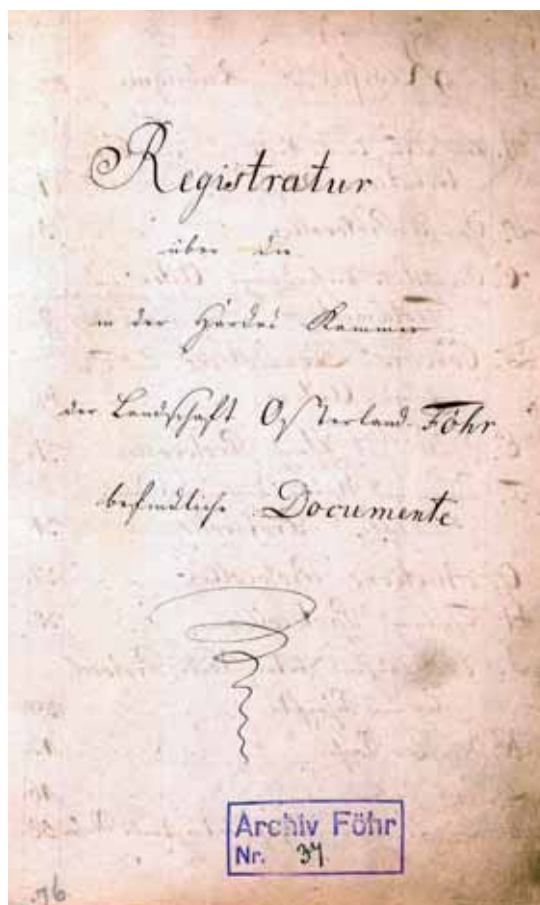 Registratur
über die
in der Hardes Kammer
der Landschaft Osterland-Föhr
befindliche Documente
Archiv Föhr
Nr. 34